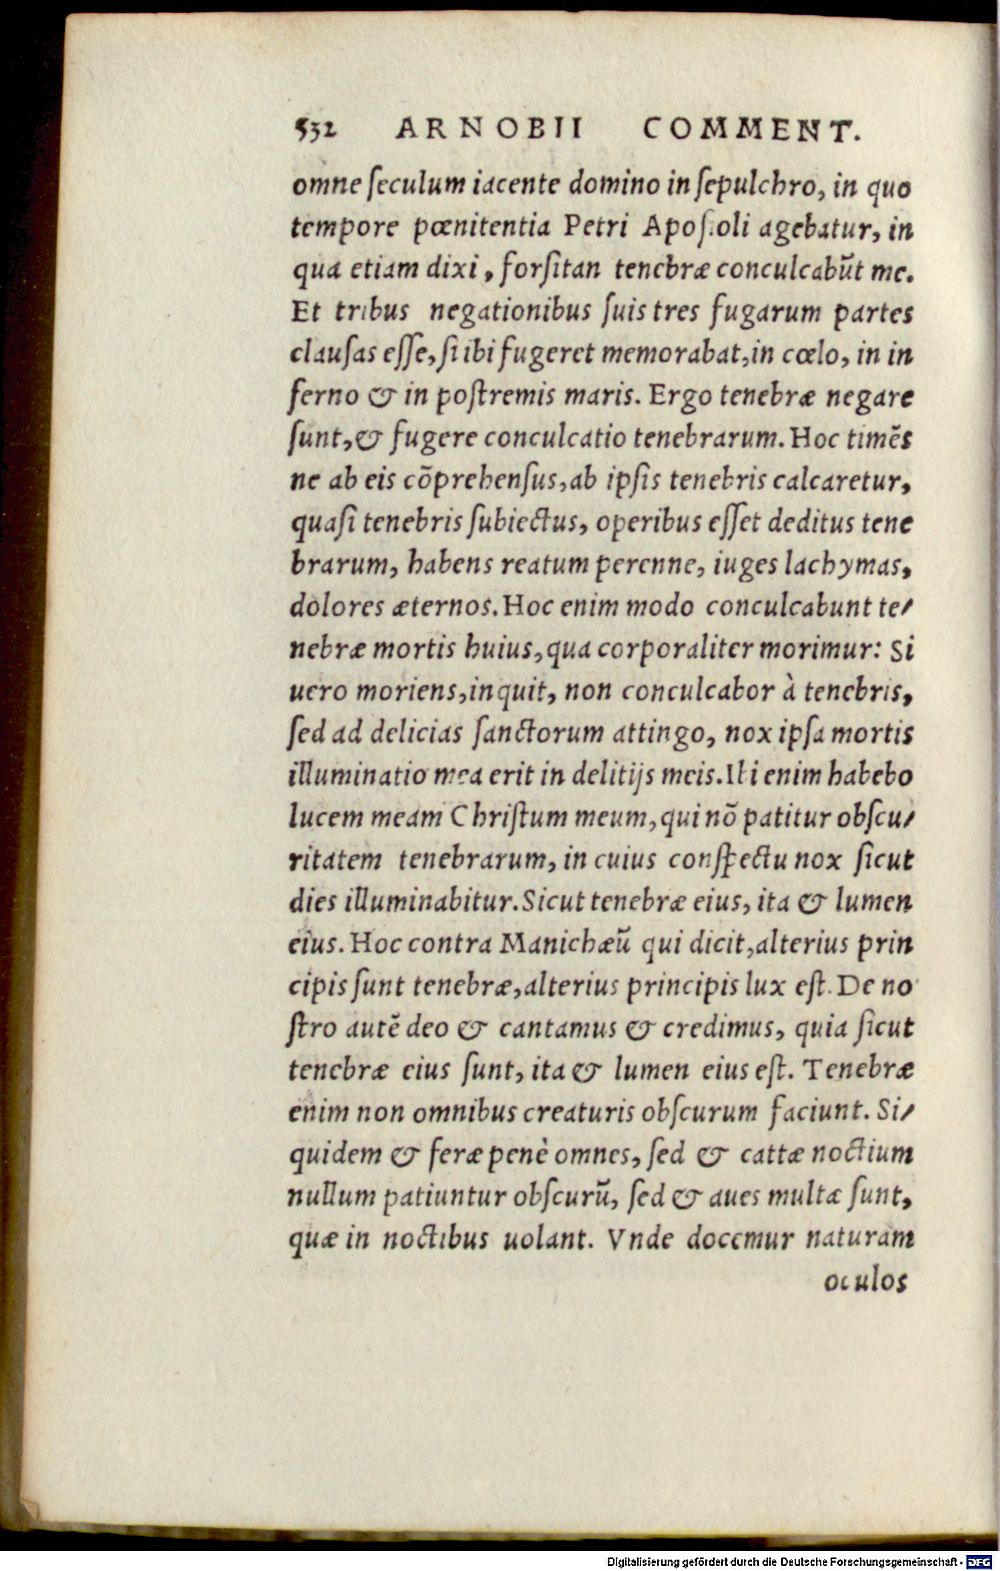 532 ARNOBII COMMENT.
omne ſeculum iacente domino in ſepulchro, in quo
tempore pœnitentia Petri Apoſtoli agebatur, in
qua etiam dixi, forſitan tenebræ conculcabūt me.
Et tribus negationibus ſuis tres fugarum partes
clauſas eſſe, ſi ibi fugeret memorabat, in cœlo, in in
ferno & in poſtremis maris. Ergo tenebræ negare
ſunt, & fugere conculcatio tenebrarum. Hoc timēs
ne ab eis cōprehenſus, ab ipſis tenebris calcaretur,
quaſi tenebris ſubiectus, operibus eſſet deditus tene
brarum, habens reatum perenne, iuges lachymas,
dolores æternos. Hoc enim modo conculcabunt te/
nebræ mortis huius, qua corporaliter morimur: Si
uero moriens, inquit, non conculcabor à tenebris,
ſed ad delicias ſanctorum attingo, nox ipſa mortis
illuminatio mea erit in delitijs meis. Ibi enim habebo
lucem meam Chriſtum meum, qui nō patitur obſcu/
ritatem tenebrarum, in cuius conſpectu nox ſicut
dies illuminabitur. Sicut tenebræ eius, ita & lumen
eius. Hoc contra Manichæū qui dicit, alterius prin
cipis ſunt tenebræ, alterius principis lux eſt. De no
ſtro autē deo & cantamus & credimus, quia ſicut
tenebræ eius ſunt, ita & lumen eius eſt. Tenebræ
enim non omnibus creaturis obſcurum faciunt. Si/
quidem & feræ penè omnes, ſed & cattæ noctium
nullum patiuntur obſcurū, ſed & aues multæ ſunt,
quæ in noctibus uolant. Vnde docemur naturam
oculos
Digitalisierung gefördert durch die Deutsche Forschungsgemeinschaft - DFG